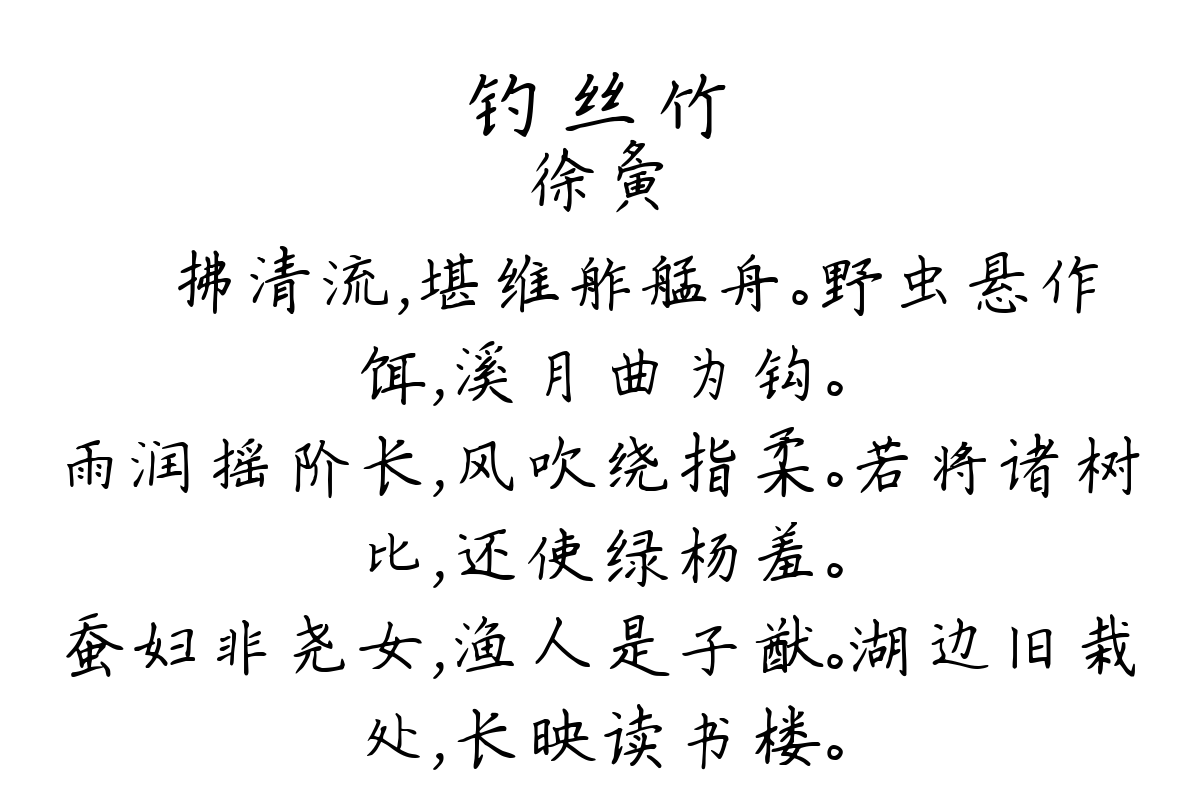 钓丝竹
徐夤
拂清流,堪维舴艋舟。野虫悬作
饵,溪月曲为钩。
雨润摇阶长,风吹绕指柔。若将诸树
比,还使绿杨羞。
蚕妇非尧女,渔人是子猷。湖边旧栽
处,长映读书楼。